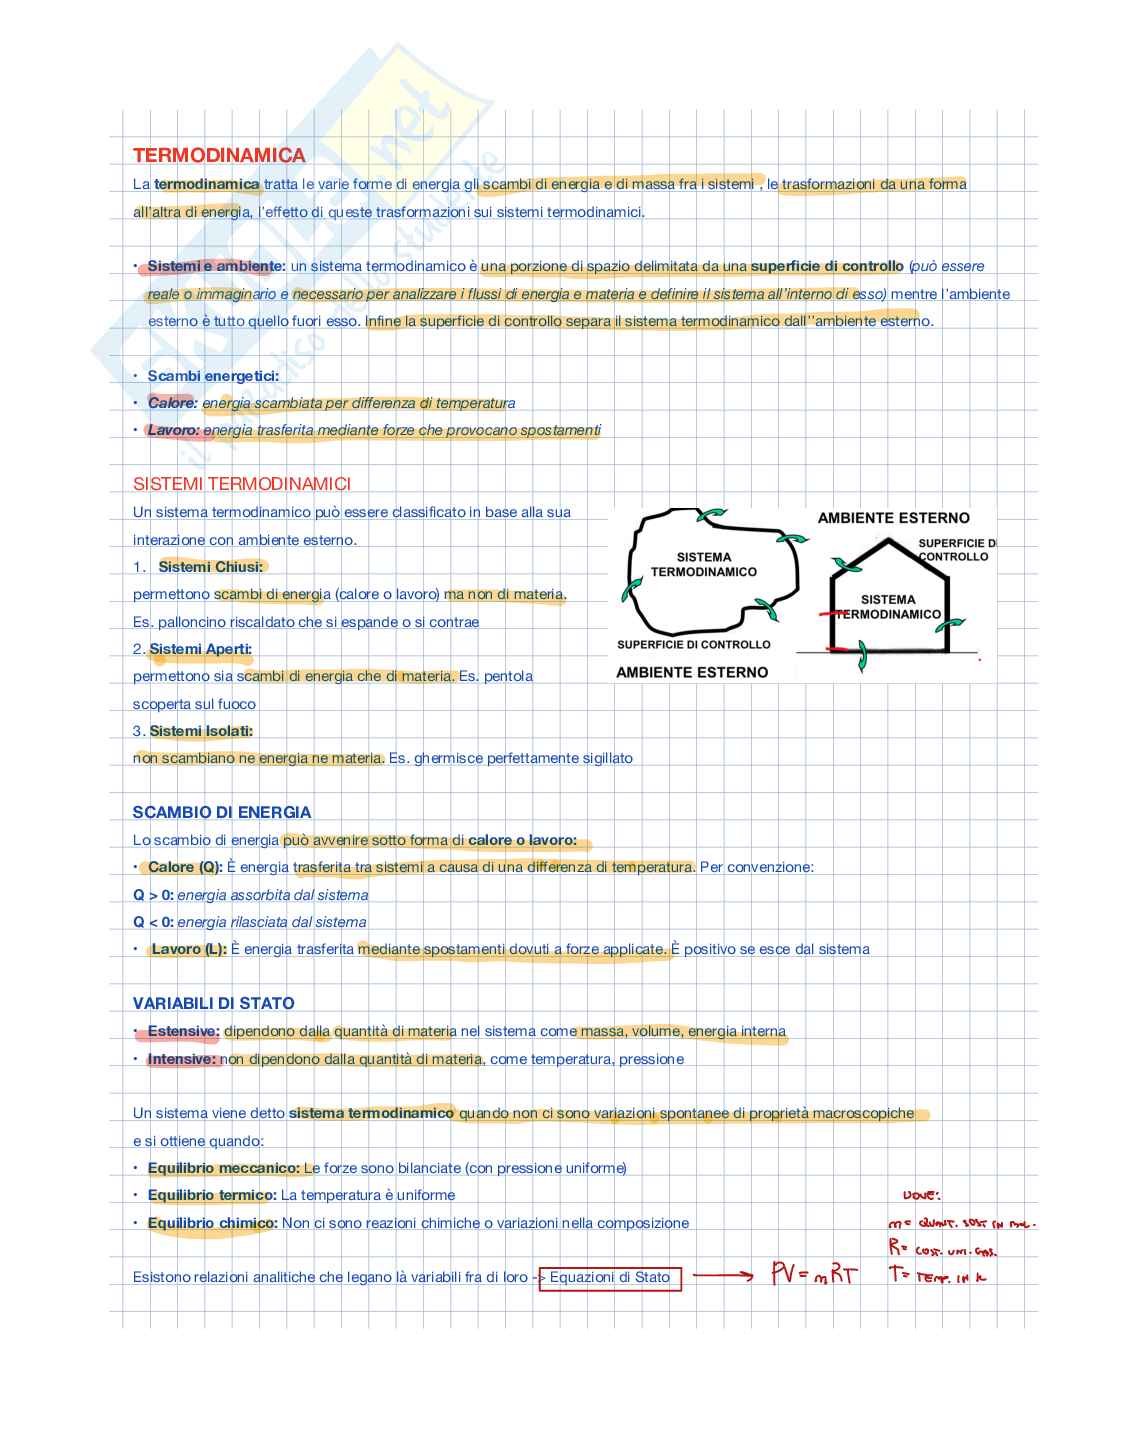 TERMODINAMICA
La termodinamica tratta le varie forme di energia gli scambi di energia e di massa fra i sistemi , le trasformazioni da una forma
all'altra di energia, l'effetto di queste trasformazioni sui sistemi termodinamici.
• Sistemi e ambiente: un sistema termodinamico è una porzione di spazio delimitata da una superficie di controllo (può essere
reale o immaginario e necessario per analizzare i flussi di energia e materia e definire il sistema all'interno di esso) mentre l'ambiente
esterno è tutto quello fuori esso. Infine la superficie di controllo separa il sistema termodinamico dall''ambiente esterno.
• Scambi energetici:
• Calore: energia scambiata per differenza di temperatura
• Lavoro: energia trasferita mediante forze che provocano spostamenti
SISTEMI TERMODINAMICI
Un sistema termodinamico può essere classificato in base alla sua
interazione con ambiente esterno.
1. Sistemi Chiusi:
permettono scambi di energia (calore o lavoro) ma non di materia.
Es. palloncino riscaldato che si espande o si contrae
2. Sistemi Aperti:
permettono sia scambi di energia che di materia. Es. pentola
scoperta sul fuoco
3. Sistemi Isolati:
non scambiano ne energia ne materia. Es. ghermisce perfettamente sigillato
SISTEMA
TERMODINAMICO
SUPERFICIE DI CONTROLLO
AMBIENTE ESTERNO
AMBIENTE ESTERNO
SUPERFICIE DI
CONTROLLO
SISTEMA
TERMODINAMICO
SCAMBIO DI ENERGIA
Lo scambio di energia può avvenire sotto forma di calore o lavoro:
• Calore (Q): È energia trasferita tra sistemi a causa di una differenza di temperatura. Per convenzione:
Q > 0: energia assorbita dal sistema
Q < 0: energia rilasciata dal sistema
• Lavoro (L): È energia trasferita mediante spostamenti dovuti a forze applicate. È positivo se esce dal sistema
VARIABILI DI STATO
• Estensive: dipendono dalla quantità di materia nel sistema come massa, volume, energia interna
• Intensive: non dipendono dalla quantità di materia, come temperatura, pressione
Un sistema viene detto sistema termodinamico quando non ci sono variazioni spontanee di proprietà macroscopiche
e si ottiene quando:
• Equilibrio meccanico: Le forze sono bilanciate (con pressione uniforme)
• Equilibrio termico: La temperatura è uniforme
• Equilibrio chimico: Non ci sono reazioni chimiche o variazioni nella composizione
Esistono relazioni analitiche che legano là variabili fra di loro -> Equazioni di Stato → PV = nRT
DOVE:
n = QUANT. SOST IN MOL.
R = COST. UNI. GAS.
T = TEMP. IN K
SKUOLA.net
il paradiso dello studente